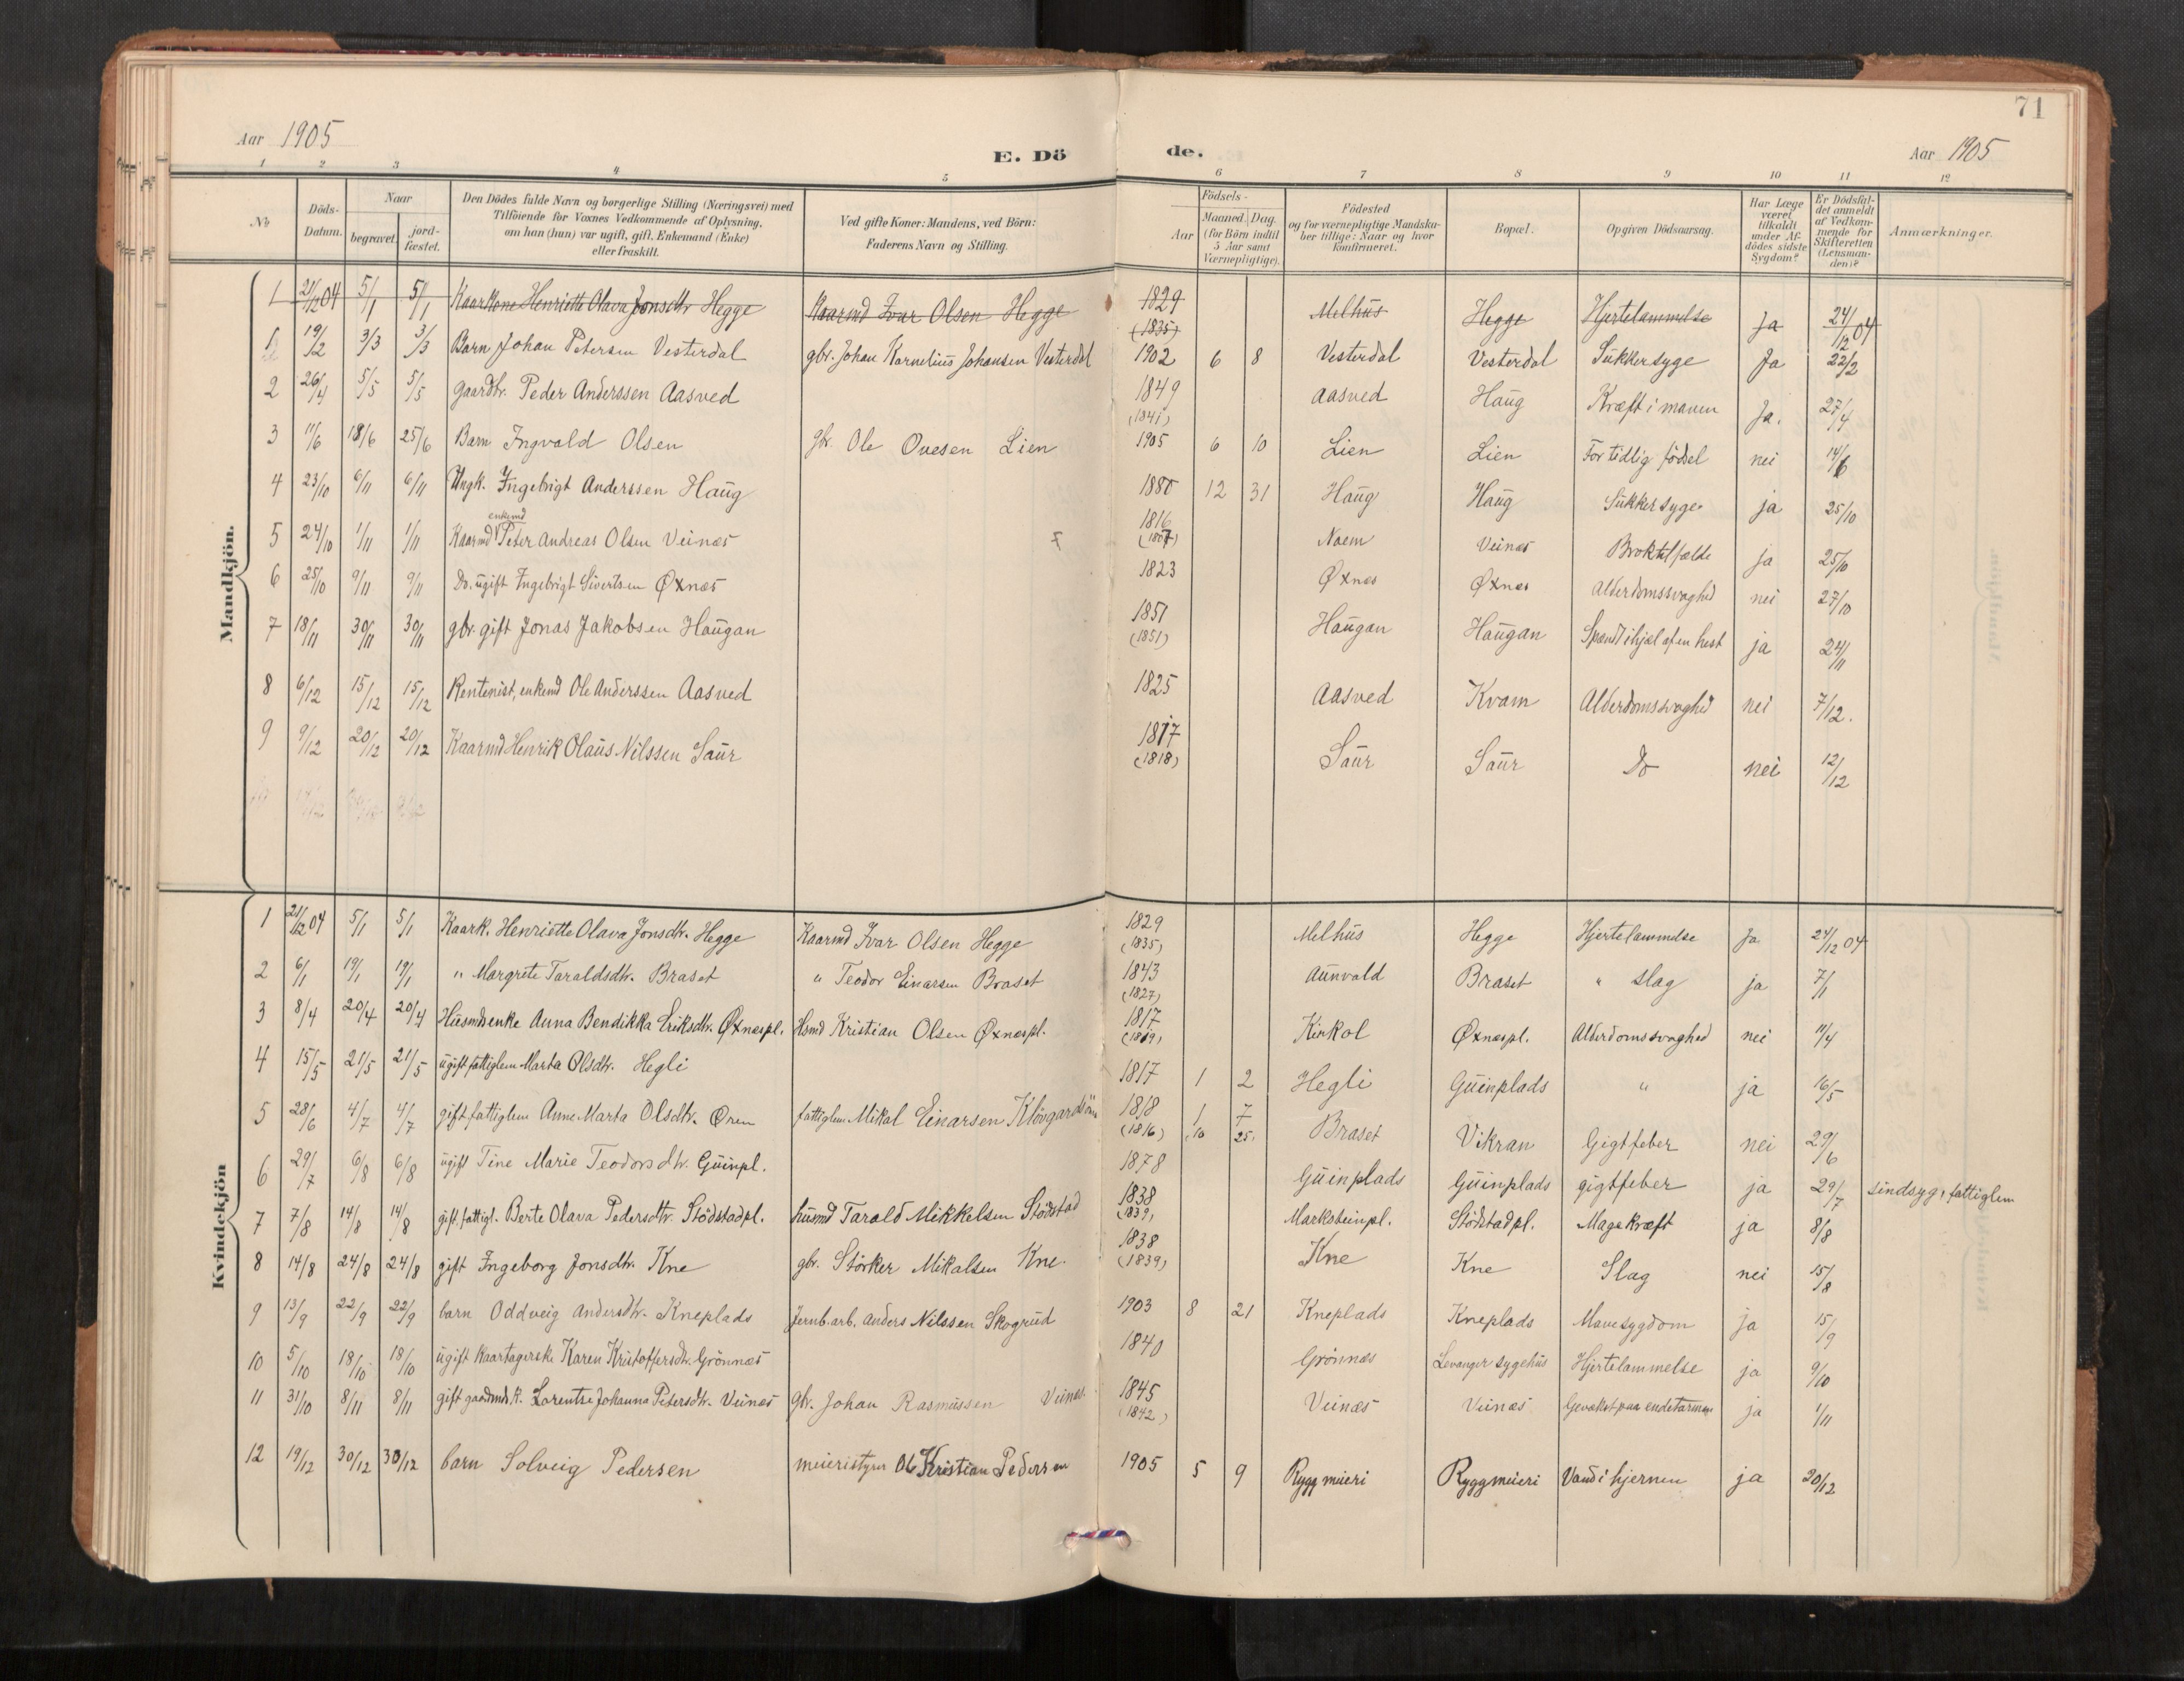 71
Aar 1905
E. Dö de.
Aar 1905
1 2 3 4 5 6 7 8 9 10 11 12
No
Döds-Datum.
Naar
begravet.
jord-fæstet.
Den Dödes fulde Navn og borgerlige Stilling (Næringsvei) med
Tilföiende for Voxnes Vedkommende af Oplysning,
om han (hun) var ugift, gift, Enkemand (Enke)
eller fraskilt.
Ved gifte Koner: Mandens, ved Börn:
Faderens Navn og Stilling.
Födsels-
Aar
Maaned. Dag.
(for Börn indtil
5 Aar samt
Værnepligtige).
Födested
og for værnepligtige Mandskaber tillige: Naar og hvor
konfirmeret.
Bopæl.
Opgiven Dödsaarsag.
Har Læge
været
tilkaldt
under Afdödes sidste
Sygdom?
Er Dödsfaldet anmeldt
af Vedkommende for
Skifteretten
(Lensmanden)?
Anmærkninger.
Mandkjön.
1 21/12 04 5/1 5/1 Kaarkone Henriette Olava Jonsdtr Hegge Kaarmd Ivar Olsen Hegge 1829 (1835) Melhus Hegge Hjertelammelse Ja 24/12 04
1 19/2 3/3 3/3 Barn Johan Petersen Vesterdal gbr. Johan Kornelius Johansen Vesterdal 1902 6 8 Vesterdal Vesterdal Sukkersyge Ja 22/2
2 26/4 5/5 5/5 Gaardbr. Peder Anderssen Aasved 1849 (1841) Aasved Haug Kræft i maven Ja. 27/4
3 11/6 18/6 25/6 Barn Ingvald Olsen gbr. Ole Ovesen Lien 1905 6 10 Lien Lien For tidlig födsel nei 14/6
4 23/10 6/11 6/11 Ungk. Ingebrigt Anderssen Haug 1880 12 31 Haug Haug Sukkersyge ja 25/10
5 24/10 1/11 1/11 Kaarmd enkemd Peter Andreas Olsen Veinæs 1816 (1807) Noem Veinæs ja 25/10
6 25/10 9/11 9/11 Do. ugift Ingebrigt Sivertsen Øxnæs 1823 Øxnæs Øxnæs Alderdomssvaghed nei 27/10
7 18/11 30/11 30/11 gbr. gift Jonas Jakobsen Haugan 1851 (1851) Haugan Haugan Spændt ihjel af en hest ja 24/11
8 6/12 15/12 15/12 Rentenist, enkemd Ole Anderssen Aasved 1825 Aasved Kvam Alderdomssvaghed nei 7/12.
9 9/12 20/12 20/12 Kaarmd Henrik Olaus Nilssen Saur 1817 (1818) Saur Saur Do nei 12/12
Kvindekjön
1 21/12 04 5/1 5/1 Kaark. Henriette Olava Jonsdtr. Hegge Kaarmd Ivar Olsen Hegge 1829 (1835) Melhus Hegge Hjertelammelse Ja 24/12 04
2 6/1 19/1 19/1 " Margrete Taraldsdtr. Braset " Teodor Einarsen Braset 1843 (1827) Aunvald Braset " slag ja 7/1
3 8/4 20/4 20/4 Husmdsenke Anna Bendikka Eriksdtr. Øxnæspl. Hsmd Kristian Olsen Øxnæspl. 1817 (1819) Kirkol Øxnæspl. Alderdomssvaghed nei 11/4
4 15/5 21/5 21/5 ugift fattiglem Marta Olsdtr. Hegli 1817 1 2 Hegli Guinplads " ja 16/5
5 28/6 4/7 4/7 gift fattiglem Anne Marta Olsdtr. Øren fattiglem Mikal Einarsen 1818 (1816) 1 (10 7 25) Braset Vikran Gigtfeber nei 29/6
6 29/7 6/8 6/8 ugift Tine Marie Teodorsdtr. Guinpl. 1878 Guinplads Guinplads gigtfeber ja 29/7 Sindsyg, fattiglem
7 7/8 14/8 14/8 gift. fattigl. Berte Olava Pedersdtr. Stödstadpl. husmd Tarald Mikkelsen Stödstad 1838 (1839) Marksteinpl. Stödstadpl. Mage kræft ja 8/8
8 14/8 24/8 24/8 gift Ingeborg Jonsdtr. Kne gbr. Störker Mikalsen Kne. 1838 (1839) Kne Kne Slag nei 15/8
9 13/9 22/9 22/9 barn Oddveig Andersdtr. Kneplads Jernb.arb. Anders Nilssen Skogrud 1903 8 21 Kneplads Kneplads Mavesygdom ja 15/9
10 5/10 18/10 18/10 ugift Kaartagerske Karen Kristoffersdtr. Grönnæs 1840 Grönnæs Levanger sygehus Hjertelammelse ja 9/10
11 31/10 8/11 8/11 gift gaardmds k. Lorentse Johanna Petersdtr. Veinæs gbr. Johan Rasmussen Veinæs 1845 (1842) Veinæs Veinæs Gevækst paa endetarmen ja 1/11
12 19/12 30/12 30/12 barn Solveig Pedersen meieristyrer Ole Kristian Pedersen 1905 5 9 Rygg meieri Rygg meieri Vand i hjernen ja 20/12